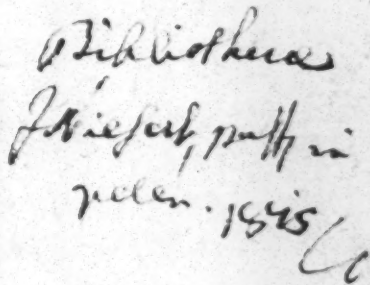 Bibliotheca
J. Niesert, past. in
velen. 1815